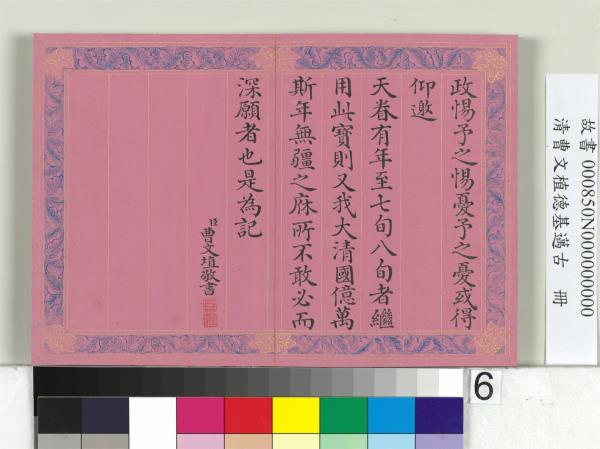 政惕予之惕憂予之憂或得
仰邀
天眷有年至七旬八旬者繼
用此寶則又我大清國億萬
斯年無疆之庥所不敢必而
深願者也是為記
臣曹文埴敬書
故書 000850N000000000
清曹文植德基邁古 冊
6